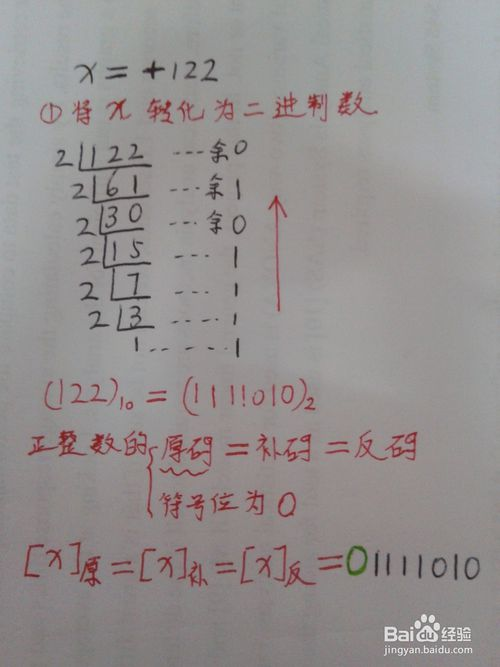 x = +122
① 将 x 转化为二进制数
2 122 ··· 余 0
2 61 ··· 余 1
2 30 ··· 余 0
2 15 ··· 1
2 7 ··· 1
2 3 ···· 1
1 ······ 1
(122)₁₀ = (1111010)₂
正整数的 原码 = 补码 = 反码
符号位为 0
[x]原 = [x]补 = [x]反 = 01111010
Baidu 经验
jingyan.baidu.com